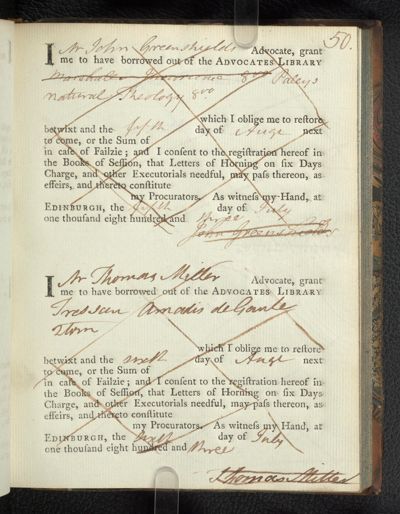 50.
I Mr John Greenshields Advocate, grant
me to have borrowed out of the ADVOCATES LIBRARY
8vo Paleys
natural Theology 8vo
which I oblige me to reſtore
betwixt and the fifth day of Augt next
to come, or the Sum of
in caſe of Failzie; and I conſent to the regiſtration hereof in
the Books of Seſſion, that Letters of Horning on ſix Days
Charge, and other Executorials needful, may paſs thereon, as
effeirs, and thereto conſtitute
my Procurators. As witneſs my Hand, at
EDINBURGH, the fifth day of July
one thousand eight hundred and three
John Greenshields
I Mr Thomas Miller Advocate, grant
me to have borrowed out of the ADVOCATES LIBRARY
Tressan Amadis de Gaule
2 tom
which I oblige me to reſtore
betwixt and the sixth day of Augt next
to come, or the Sum of
in caſe of Failzie; and I conſent to the regiſtration hereof in
the Books of Seſſion, that Letters of Horning on ſix Days
Charge, and other Executorials needful, may paſs thereon, as
effeirs, and thereto conſtitute
my Procurators. As witneſs my Hand, at
EDINBURGH, the sixth day of July
one thousand eight hundred and three
Thomas Miller